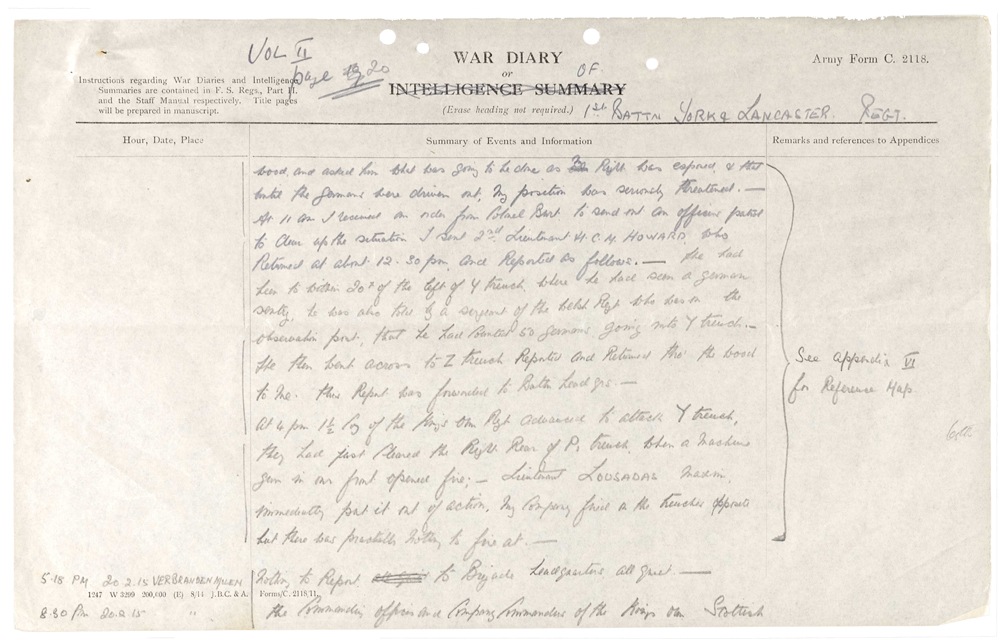 VOL II
page 20
WAR DIARY
or
INTELLIGENCE SUMMARY
OF
(Erase heading not required.)
1st BATTN YORK & LANCASTER REGT.
Army Form C. 2118.
Instructions regarding War Diaries and Intelligence
Summaries are contained in F. S. Regs., Part II.
and the Staff Manual respectively. Title pages
will be prepared in manuscript.
Hour, Date, Place
Summary of Events and Information
Remarks and references to Appendices
wood, and asked him what was going to be done as Right was exposed, & that
until the Germans were driven out, my position was seriously threatened. —
At 11 am I received an order from Colonel Bart to send out an officers patrol
to clear up the situation I sent 2nd Lieutenant H.C.M. HOWARD who
Returned at about 12.30 pm. and Reported as follows. — He had
been to within 20x of the left of Y trench, where he had seen a german
sentry, he was also told by a sergeant of the Welsh Regt who was on the
observation post, that he had counted 50 germans going into Y trench. —
He then went across to Z trench Reported and Returned thro' the wood
to me. This Report was forwarded to Battn Headqrs. —
At 4 pm 1½ Coy of the Kings Own Regt advanced to attack Y trench,
they had just cleared the Right Rear of P, trench when a Machine
gun in our front opened fire; — Lieutenant LOUSADAS Maxim,
immediately put it out of action. My Company fired on the trenches opposite
but there was practically nothing to fire at. —
See Appendix VI
for Reference Map.
5-18 PM 20.2.15 VERBRANDENMOLEN
Nothing to Report to Brigade Headquarters all quiet. —
1247 W 3299 200,000 (E) 8/14 J.B.C. & A. Forms/C. 2118/11.
8.30 pm 20.2.15 "
The Commanding officer and Company Commanders of the Kings Own Scottish